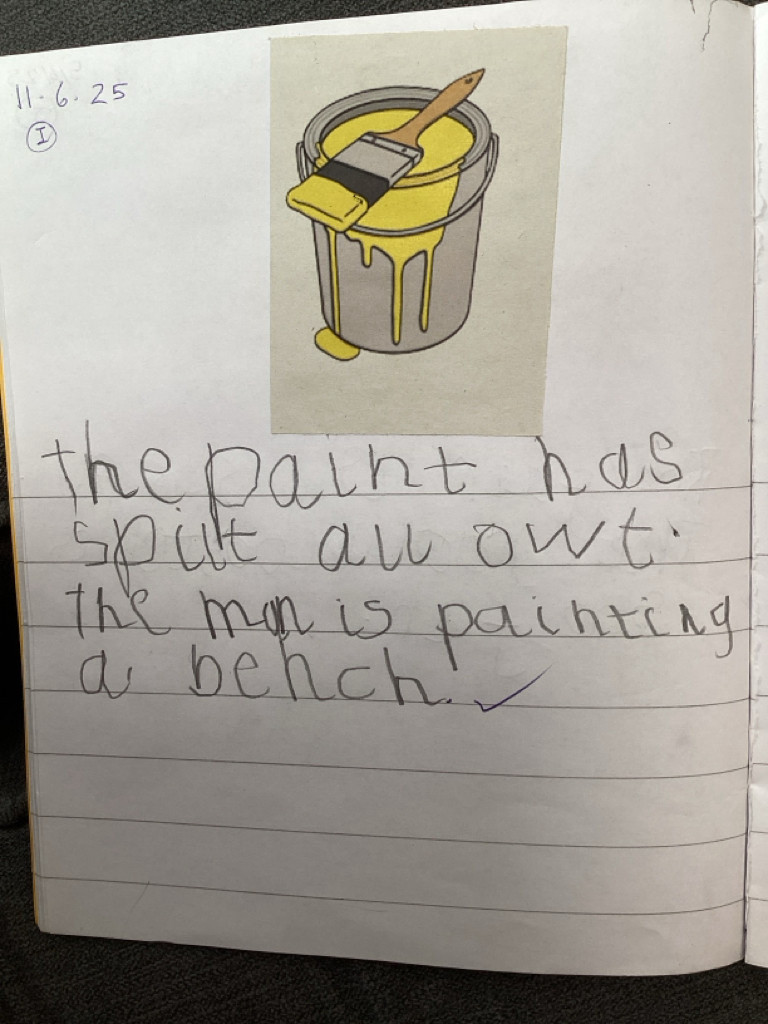 11.6.25
I
the paint has
spilt all owt.
the man is painting
a bench.